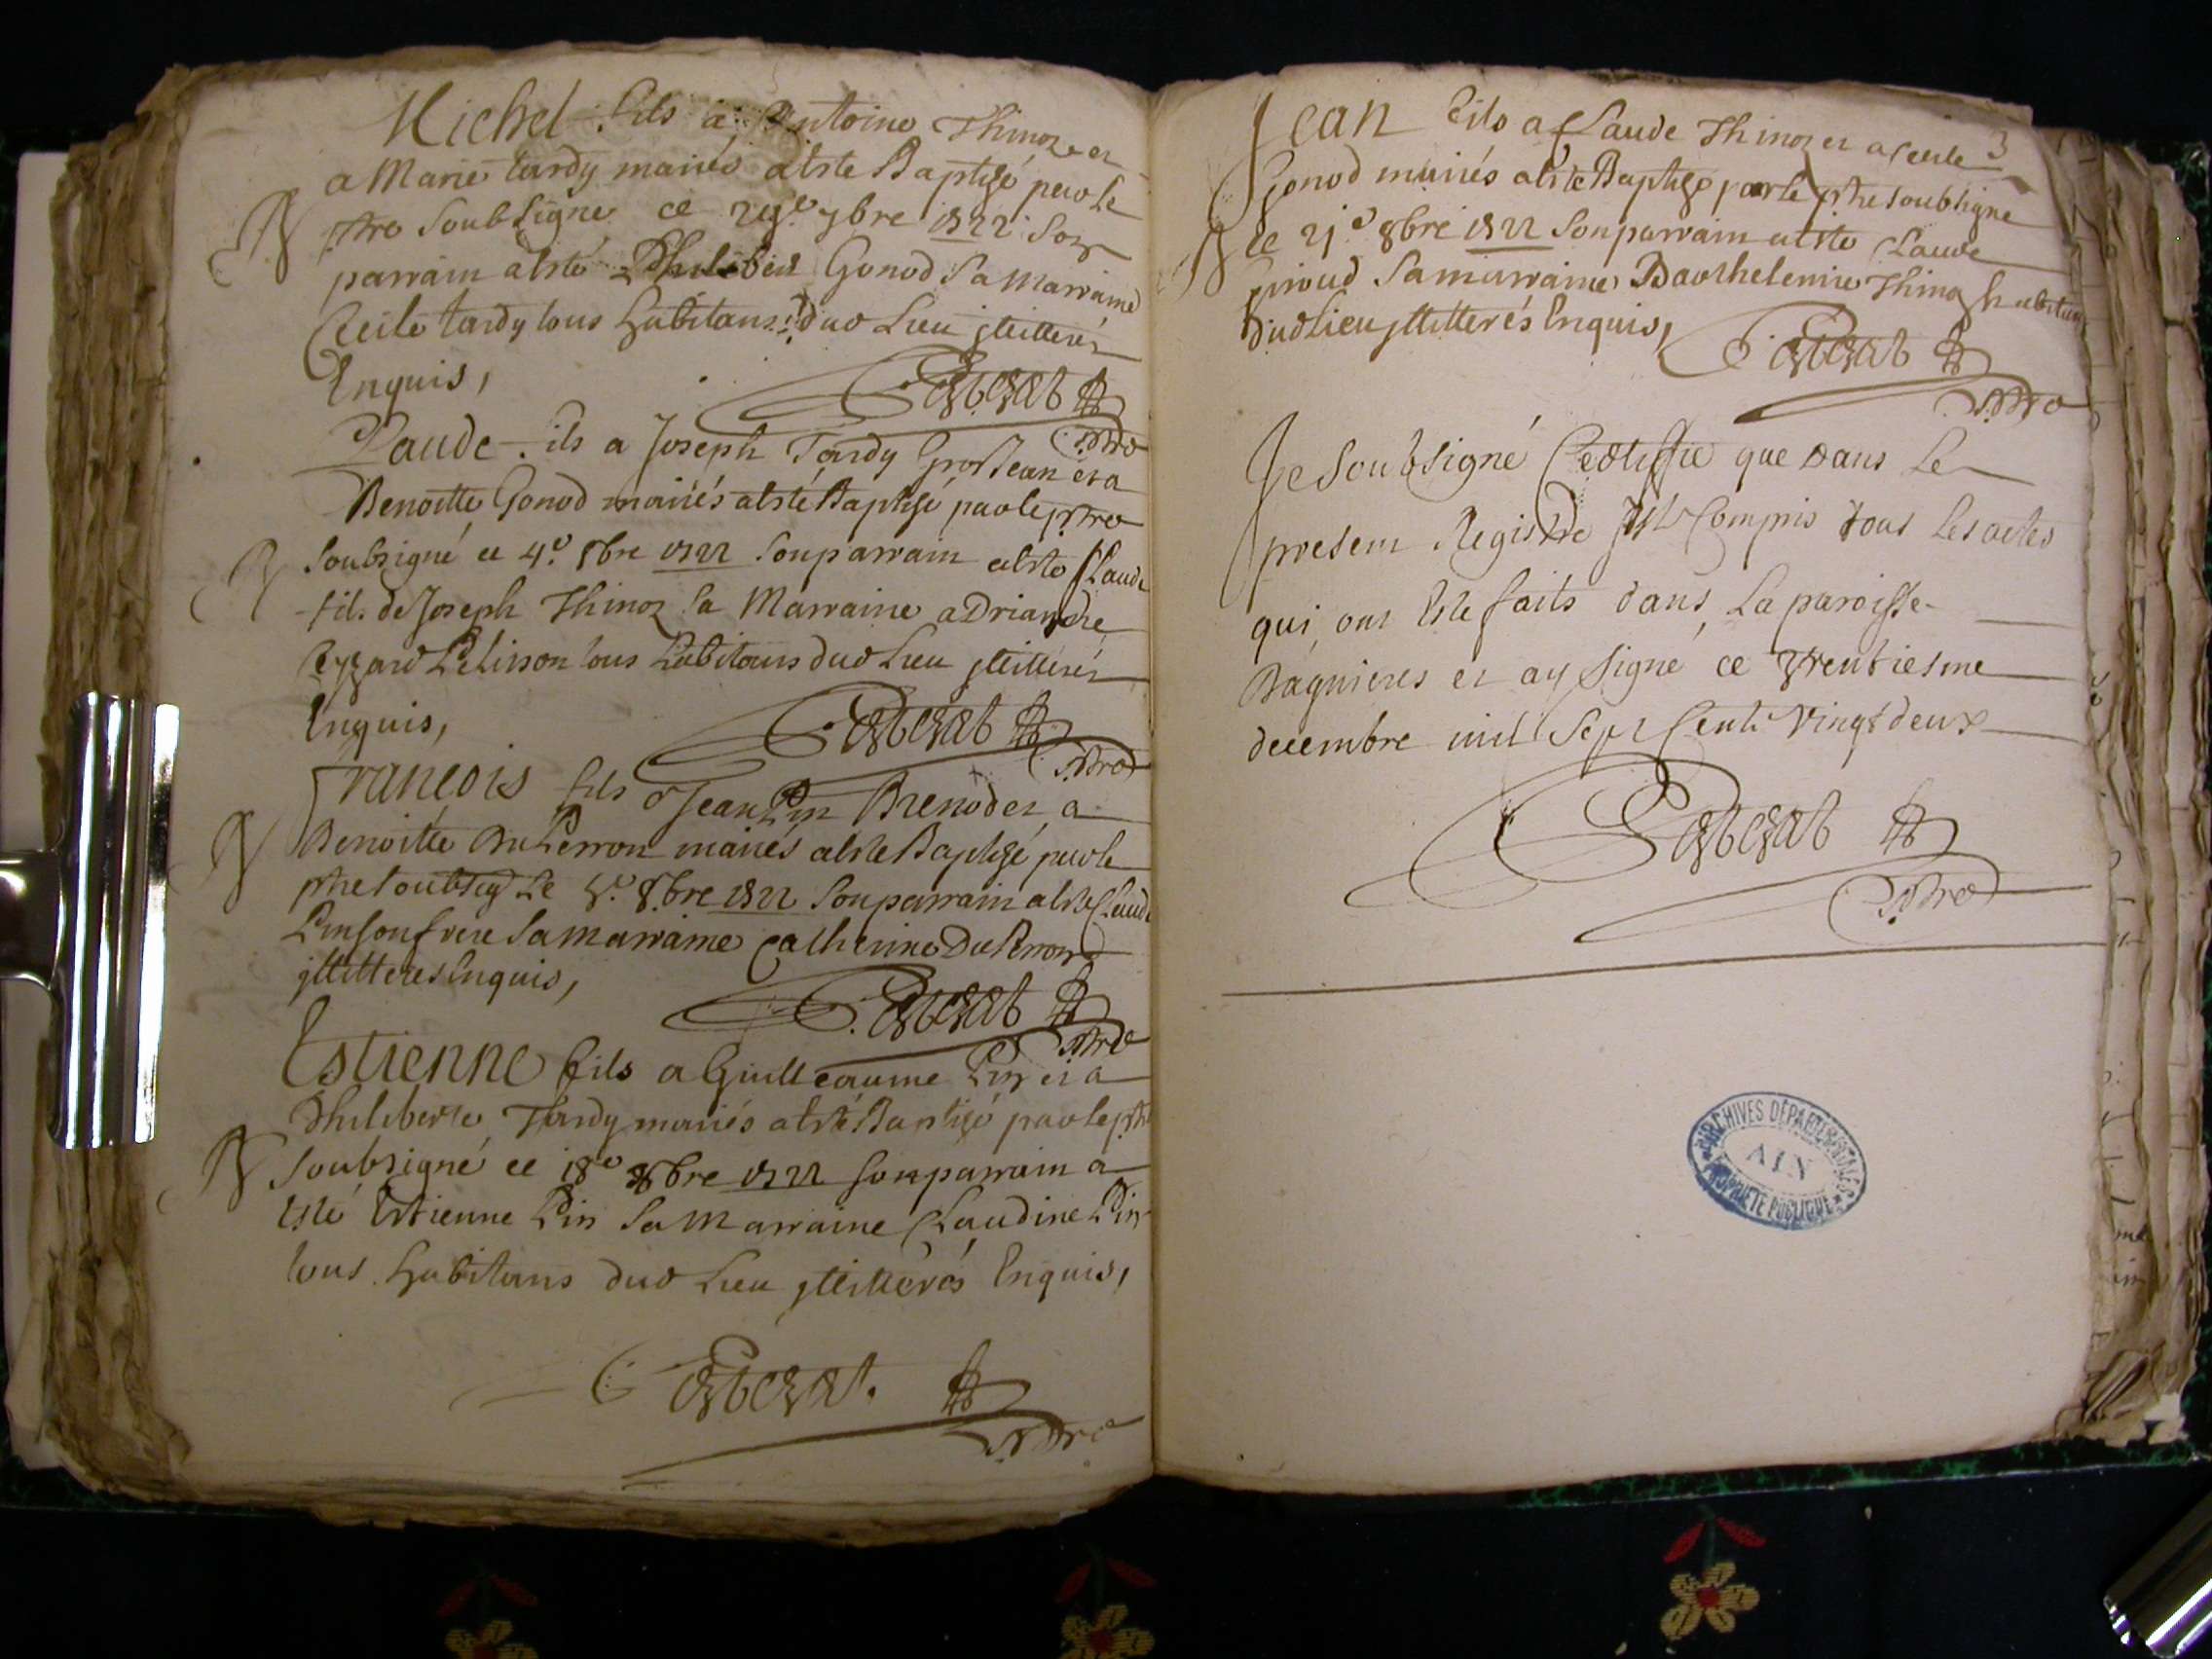 Michel fils a Antoine Thinoz et
a Marie tardy mariés a esté Baptisé par le
ptre soubsigné ce 7bre 1722 son
parrain a esté Philibert Gonod sa marraine
Cecile tardy tous habitans dud lieu illitterés
Enquis,
Ptre
Claude fils a Joseph Tardy GrosJean et a
Benoitte Gonod mariés a esté Baptisé par le ptre
soubsigné ce 4e 8bre 1722 son parrain a esté Claude
fils de Joseph Thinoz sa Marraine adrianne
Pelisson tous habitans dud lieu illitterés
Enquis,
Ptre
François fils a Jean Pin Brenod et a
Benoitte Du Perron mariés a esté Baptisé par le
ptre soubsig le 8bre 1722 son parrain a esté Claude
Pin son frere sa marraine Catherine Du Perron
illitteres Enquis,
Ptre
Estienne fils a Guilleaume Pin et a
Philiberte Tardy mariés a esté Baptisé par le ptre
soubsigné ce 18e 8bre 1722 son parrain a
Esté Estienne Pin sa Marraine Claudine Pin
tous habitans dud lieu illitterés Enquis,
Ptre
3
Jean fils a Claude Thinoz et a Cecile
Gonod mariés a esté Baptisé par le ptre soubsigne
ce 21e 8bre 1722 son parrain a esté Claude
giroud sa marraine Barthelemie Thinoz habitans
dud lieu illitterés Enquis,
Ptre
Je soubsigné Certiffie que dans le
present Registre est Compris tous les actes
qui ont Esté faits dans la paroisse
et ay signé ce trentiesme
decembre mil sept Cents vingt deux
Ptre
ARCHIVES DÉPARTEMENTALES
AIN
PROPRIÉTÉ PUBLIQUE